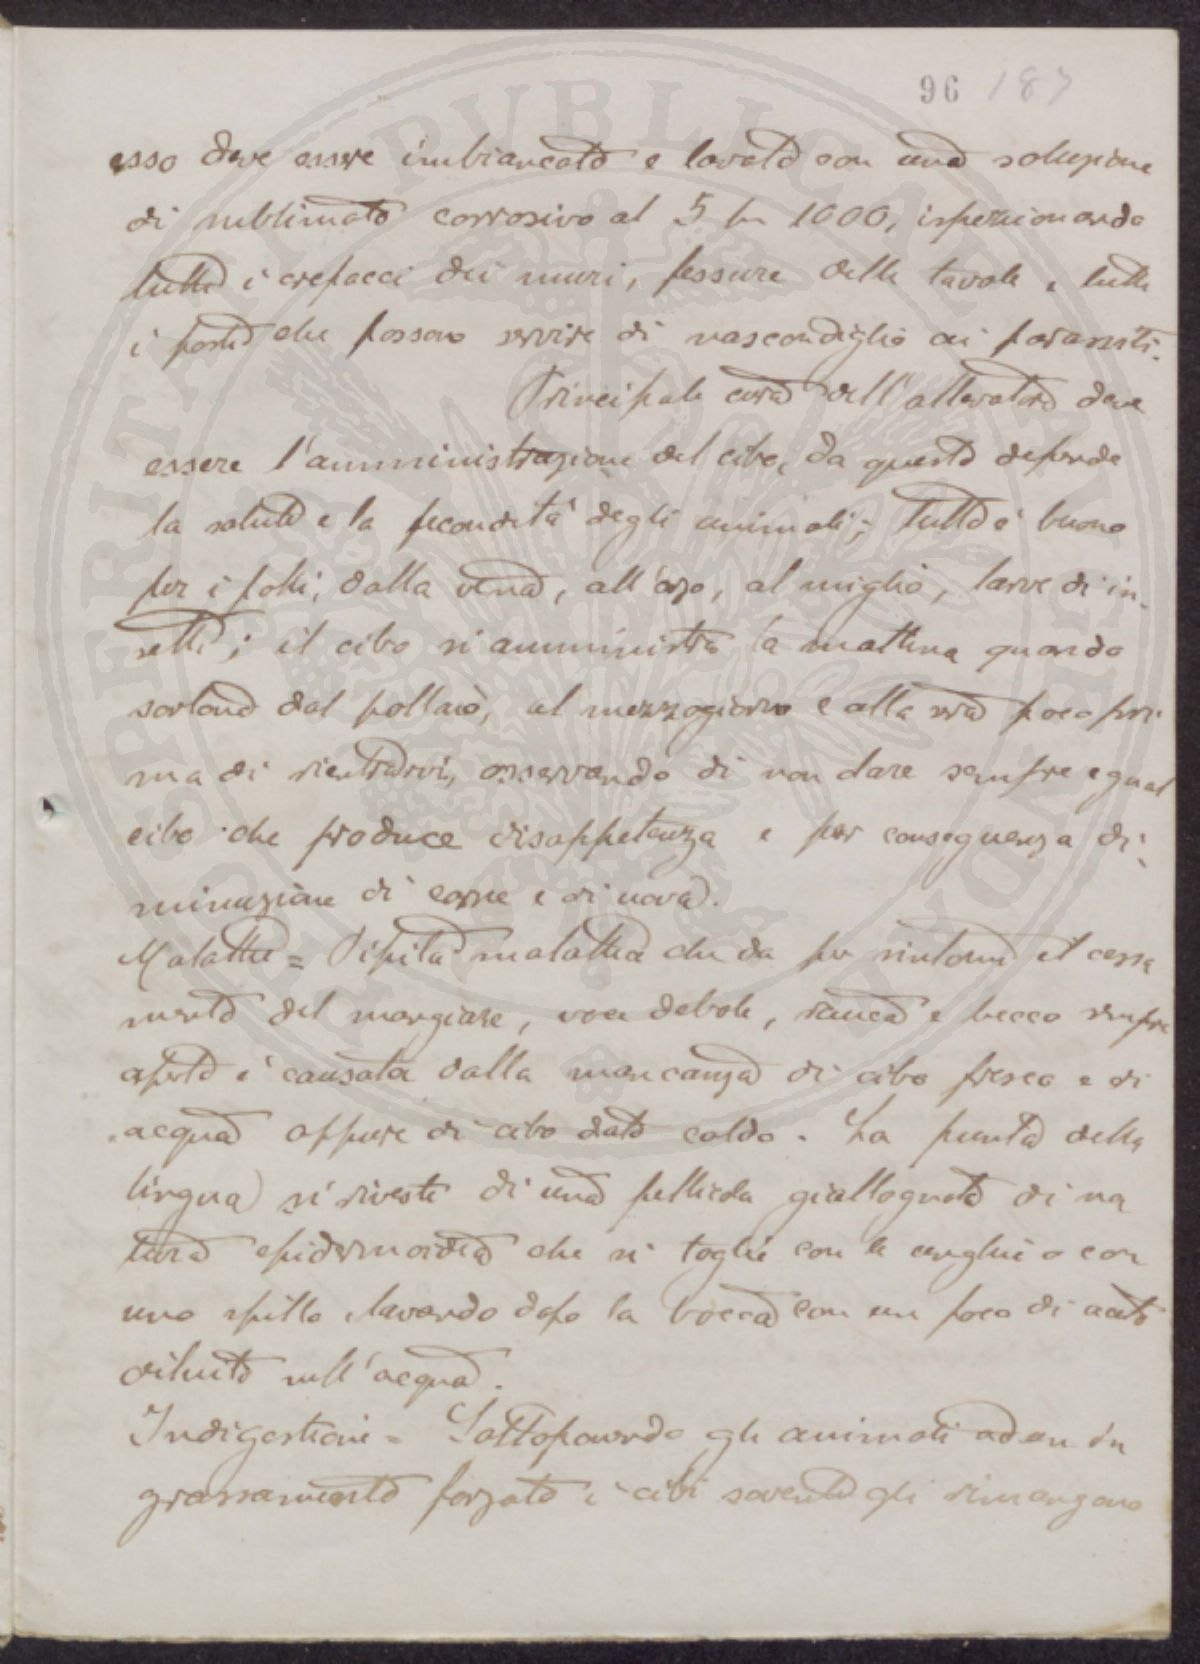 96 187
esso deve essere imbiancato e lavato con una soluzione
di sublimato corrosivo al 5 per 1000, ispezionando
tutti i crepacci dei muri, fessure delle tavole e tutti
i posti che possono servire di nascondiglio ai parassiti.
Principale cura dell'allevatore deve
essere l'amministrazione del cibo, da questo dipende
la salute e la fecondità degli animali; tutto è buono
per i polli, dalla vena, all'orzo, al miglio, larve di in-
setti; il cibo si amministra la mattina quando
sortono dal pollaio, al mezzogiorno e alla sera poco pri-
ma di rientrarvi, osservando di non dare sempre egual
cibo che produce disappetenza e per conseguenza di-
minuzione di carne e di uova.
Malattie = Pipita malattia che da per sintomi il cessa
mento del mangiare, voce debole, rauca e becco sempre
aperto è causata dalla mancanza di cibo fresco e di
acqua oppure di cibo dato caldo. La punta della
lingua si riveste di una pellicola giallognola di na
tura epidermoidea che si toglie con le unghie o con
uno spillo lavando dopo la bocca con un poco di aceto
diluito nell'acqua.
Indigestioni = Sottoponendo gli animali ad un in
grassamento forzato i cibi sovente gli rimangono
PROSPERITATI PVBLICAE AVGENDAE